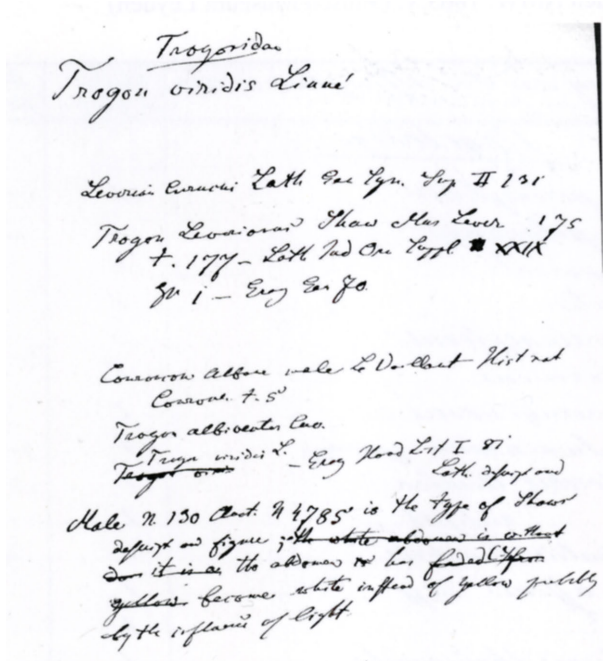 Trogonidae
Trogon viridis Linné
Leverian Curucui Lath Gen Syn. Sup II 131
Trogon Leverianus Shaw Mus Lever 175
t. 177 – Lath Ind Orn Suppl XXIX
sp 1 – Gray Gen 70.
Couroucou Albane male Le Vaillant Hist nat
Courouc. t. 5
Trogon albiventer Cuv.
Trogon viridis L. – Gray Hand List I 81
Lath. descript and
Male N 130 N 4785 is the type of Shaws
descript and figure, the white abdomen is without
it is a the abdomen has faded
yellow become white instead of yellow possibly
by the influence of light.